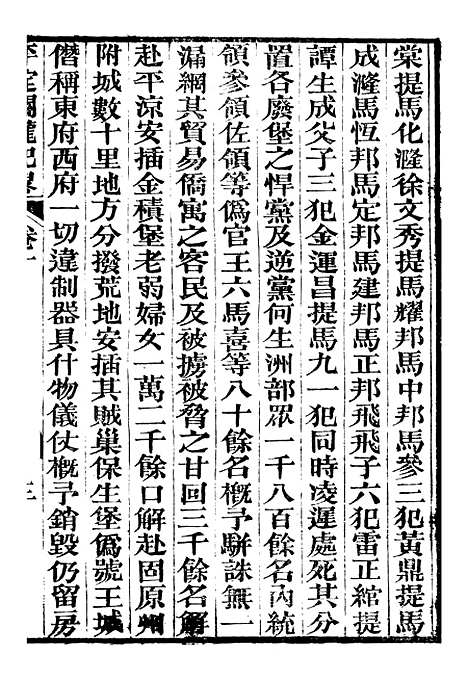 棠提馬化漋徐文秀提馬耀邦馬中邦馬參三犯黃鼎提馬
成漋馬恆邦馬定邦馬建邦馬正邦飛飛子六犯雷正綰提
譚生成父子三犯金運昌提馬九一犯同時凌遲處死其分
置各廢堡之悍黨及逆黨何生洲部眾一千八百餘名內統
領參領佐領等僞官王六馬喜等八十餘名概予駢誅無一
漏網其貿易僑寓之客民及被擄被脅之甘回三千餘名解
赴平涼安插金積堡老弱婦女一萬二千餘口解赴固原州
附城數十里地方分撥荒地安插其賊巢保生堡僞號王城
僭稱東府西府一切違制器具什物儀仗概予銷毀仍留房
平定關隴紀略 卷十 三